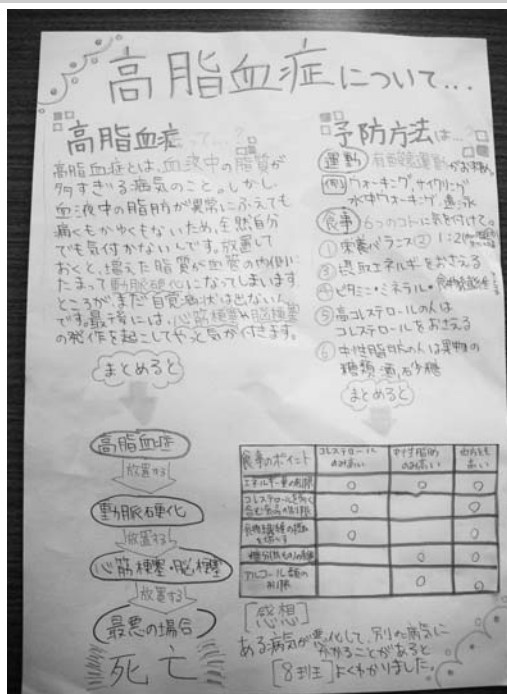 高脂血症について...
高脂血症って...?
高脂血症とは、血液中の脂質が
多すぎる病気のこと。しかし
血液中の脂肪が異常にふえても
痛くもかゆくもないため、全然自分
でも気付かないんです。放置して
おくと、増えた脂質が血管の内側に
たまって動脈硬化になってしまいます
ところが、まだ自覚症状は出ないん
です。最後には、心筋梗塞や脳梗塞
の発作を起こしてやっと気が付きます。
まとめると
高脂血症
放置する
動脈硬化
放置する
心筋梗塞・脳梗塞
放置する
最悪の場合
死亡
予防方法は...
運動 有酸素運動がおすすめ。
例 ウォーキング、サイクリング
水中ウォーキング、遠泳
食事 6つのコトに気を付けて。
① 栄養バランス ② 1:2
③ 摂取エネルギーをおさえる
④ ビタミン・ミネラル・食物繊維
⑤ 高コレステロールの人は
コレステロールをおさえる
⑥ 中性脂肪の人は果物の
糖類、酒、砂糖
まとめると
食事のポイント コレステロールのみ高い 中性脂肪のみ高い 両方とも高い
エネルギー量の制限 ○ ○ ○
コレステロールを多く含む食品の制限 ○ ○
食物繊維の摂取を増やす ○ ○
糖分 ○ ○
アルコール類の制限 ○ ○
[感想]
ある病気が悪化して、別の病気に
なることがあると
[8班] よくわかりました。